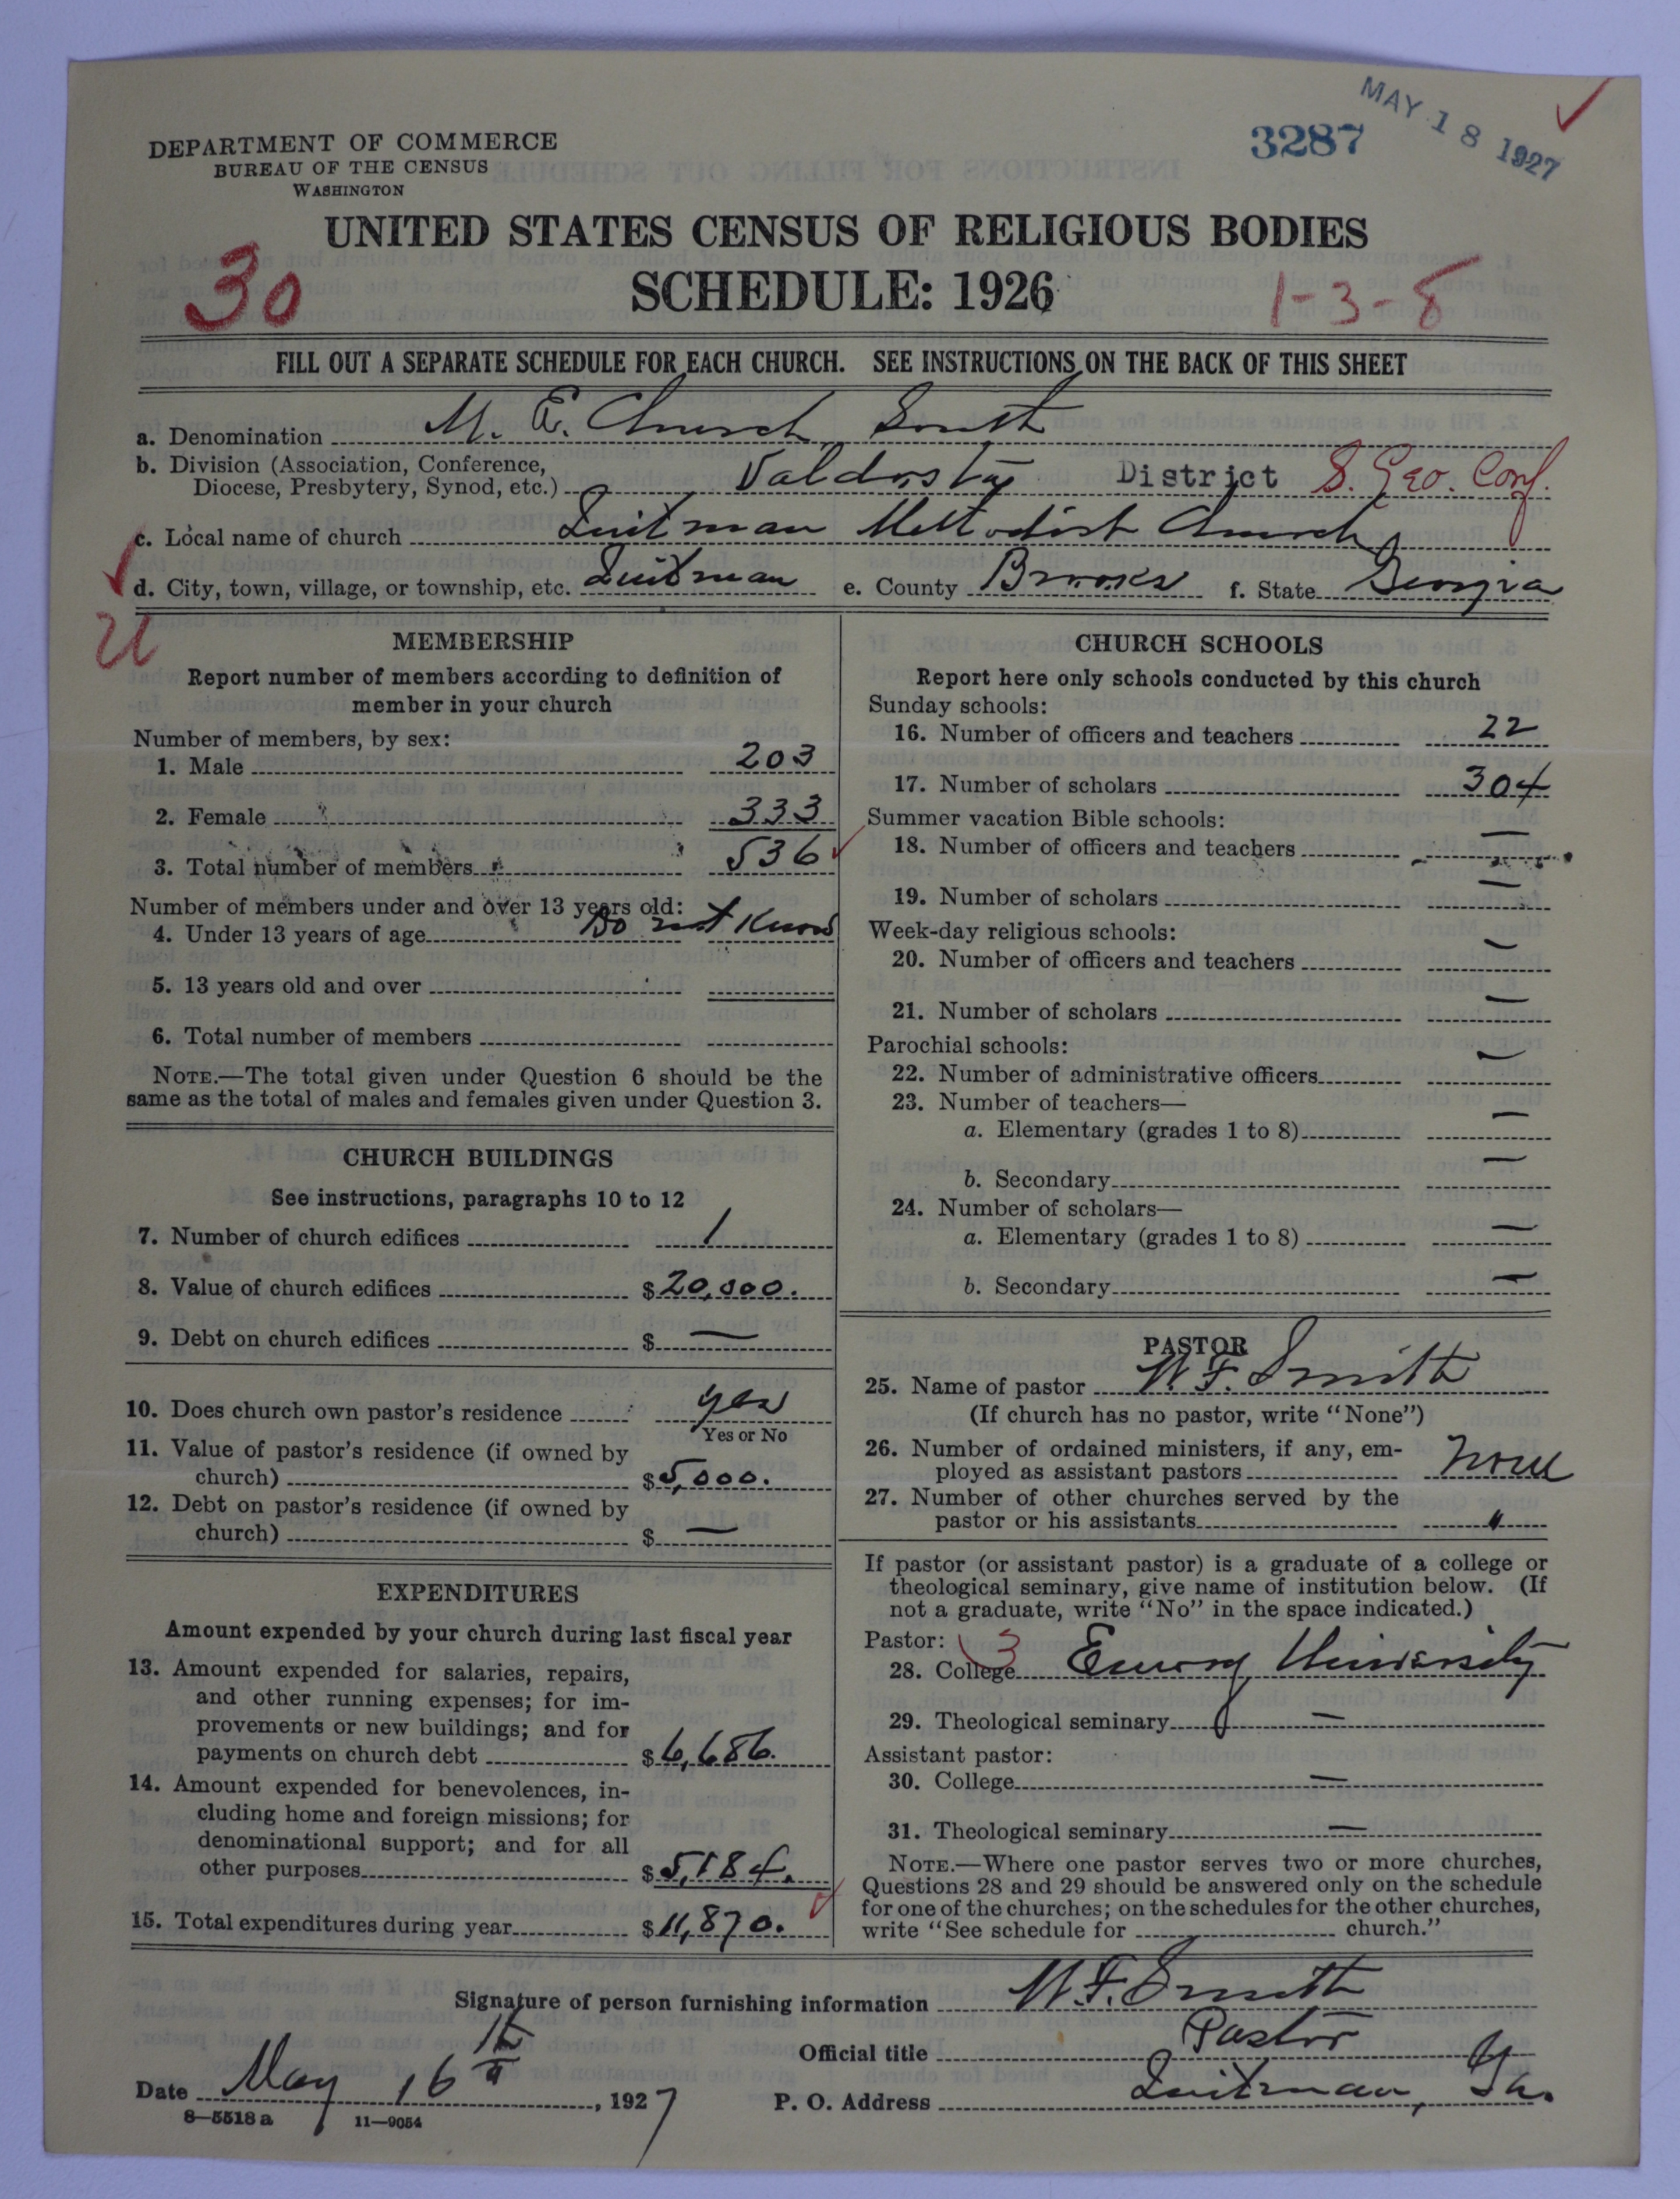 MAY 18 1927
3287
DEPARTMENT OF COMMERCE
BUREAU OF THE CENSUS
WASHINGTON
UNITED STATES CENSUS OF RELIGIOUS BODIES
SCHEDULE: 1926
30
1-3-8
FILL OUT A SEPARATE SCHEDULE FOR EACH CHURCH. SEE INSTRUCTIONS ON THE BACK OF THIS SHEET
a. Denomination M. E. Church South
b. Division (Association, Conference, Diocese, Presbytery, Synod, etc.) Valdosta District S. Geo. Conf.
c. Local name of church Quitman Methodist Church
d. City, town, village, or township, etc. Quitman e. County Brooks f. State Georgia
MEMBERSHIP
Report number of members according to definition of
member in your church
Number of members, by sex:
1. Male 203
2. Female 333
3. Total number of members 536
Number of members under and over 13 years old:
4. Under 13 years of age Do not Know
5. 13 years old and over
6. Total number of members
NOTE.—The total given under Question 6 should be the
same as the total of males and females given under Question 3.
CHURCH BUILDINGS
See instructions, paragraphs 10 to 12
7. Number of church edifices 1
8. Value of church edifices $20,000.
9. Debt on church edifices $ —
10. Does church own pastor's residence yes
Yes or No
11. Value of pastor's residence (if owned by
church) $5,000.
12. Debt on pastor's residence (if owned by
church) $ —
EXPENDITURES
Amount expended by your church during last fiscal year
13. Amount expended for salaries, repairs,
and other running expenses; for im-
provements or new buildings; and for
payments on church debt $6,686.
14. Amount expended for benevolences, in-
cluding home and foreign missions; for
denominational support; and for all
other purposes $5,184.
15. Total expenditures during year $11,870.
CHURCH SCHOOLS
Report here only schools conducted by this church
Sunday schools:
16. Number of officers and teachers 22
17. Number of scholars 304
Summer vacation Bible schools:
18. Number of officers and teachers —
19. Number of scholars —
Week-day religious schools:
20. Number of officers and teachers —
21. Number of scholars —
Parochial schools:
22. Number of administrative officers —
23. Number of teachers—
a. Elementary (grades 1 to 8) —
b. Secondary —
24. Number of scholars—
a. Elementary (grades 1 to 8) —
b. Secondary —
PASTOR
25. Name of pastor W. F. Smith
(If church has no pastor, write "None")
26. Number of ordained ministers, if any, em-
ployed as assistant pastors None
27. Number of other churches served by the
pastor or his assistants "
If pastor (or assistant pastor) is a graduate of a college or
theological seminary, give name of institution below. (If
not a graduate, write "No" in the space indicated.)
Pastor: 3
28. College Emory University
29. Theological seminary —
Assistant pastor:
30. College —
31. Theological seminary —
NOTE.—Where one pastor serves two or more churches,
Questions 28 and 29 should be answered only on the schedule
for one of the churches; on the schedules for the other churches,
write "See schedule for church."
Signature of person furnishing information W. F. Smith
Official title Pastor
Date May 16th, 1927 P. O. Address Quitman, Ga.
8—5518a 11—9054